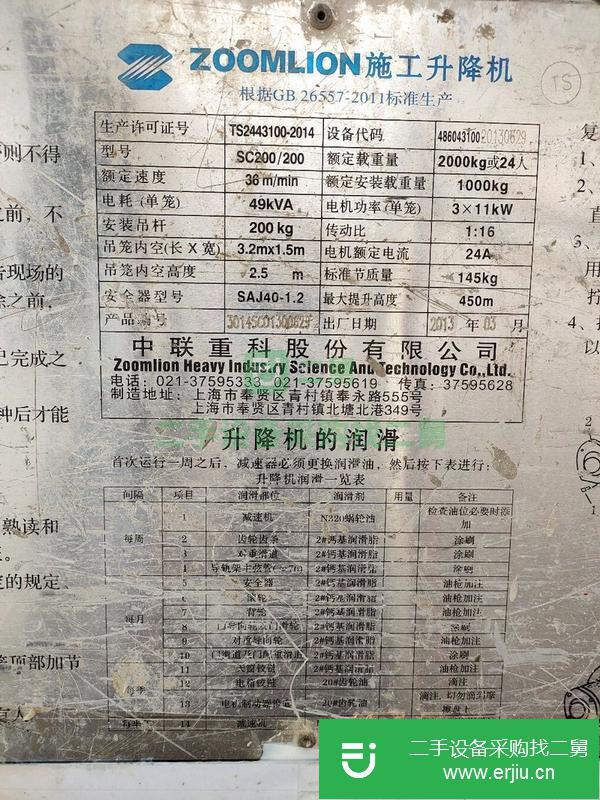 ZOOMLION施工升降机
TS
根据GB 26557-2011标准生产
生产许可证号 TS2443100-2014 设备代码 48604310020130629
型号 SC200/200 额定载重量 2000kg或24人
额定速度 36m/min 额定安装载重量 1000kg
电耗(单笼) 49kVA 电机功率(单笼) 3×11kW
安装吊杆 200kg 传动比 1:16
吊笼内空(长X宽) 3.2m×1.5m 电机额定电流 24A
吊笼内空高度 2.5 m 标准节质量 145kg
安全器型号 SAJ40-1.2 最大提升高度 450m
产品编号 出厂日期 2013 年 03 月
中联重科股份有限公司
Zoomlion Heavy Industry Science And Technology Co.,Ltd.
电话:021-37595333 021-37595619 传真:37595628
制造地址:上海市奉贤区青村镇奉永路555号
上海市奉贤区青村镇北塘北港349号
升降机的润滑
首次运行一周之后,减速器必须更换润滑油,然后按下表进行:
升降机润滑一览表
间隔 项目 润滑部位 润滑剂 用量 备注
每周 1 减速机 N320蜗轮油 检查油位必要时添加
2 齿轮齿条 2#钙基润滑脂 涂刷
3 对重滑道 2#钙基润滑脂 涂刷
4 2#钙基润滑脂 涂刷
5 安全器 2#钙基润滑脂 油枪加注
每月 6 滚轮 2#钙基润滑脂 油枪加注
7 背轮 2#钙基润滑脂 油枪加注
8 2#钙基润滑脂 涂刷
9 对重导向轮 2#钙基润滑脂 油枪加注
10 2#钙基润滑脂 涂刷
11 天窗铰链 2#钙基润滑脂 油枪加注
每季 12 电箱铰链 20#齿轮油 滴注
13 20#齿轮油
每半年 14 减速机
则不得
之前,不
告现场的
除之前,
已完成之
钟后才能
熟读和
定的规定、
顶部加节
复
1、
2、
直
3、
用
拧
4、
以
二手设备采购找二舅
www.erjiu.cn